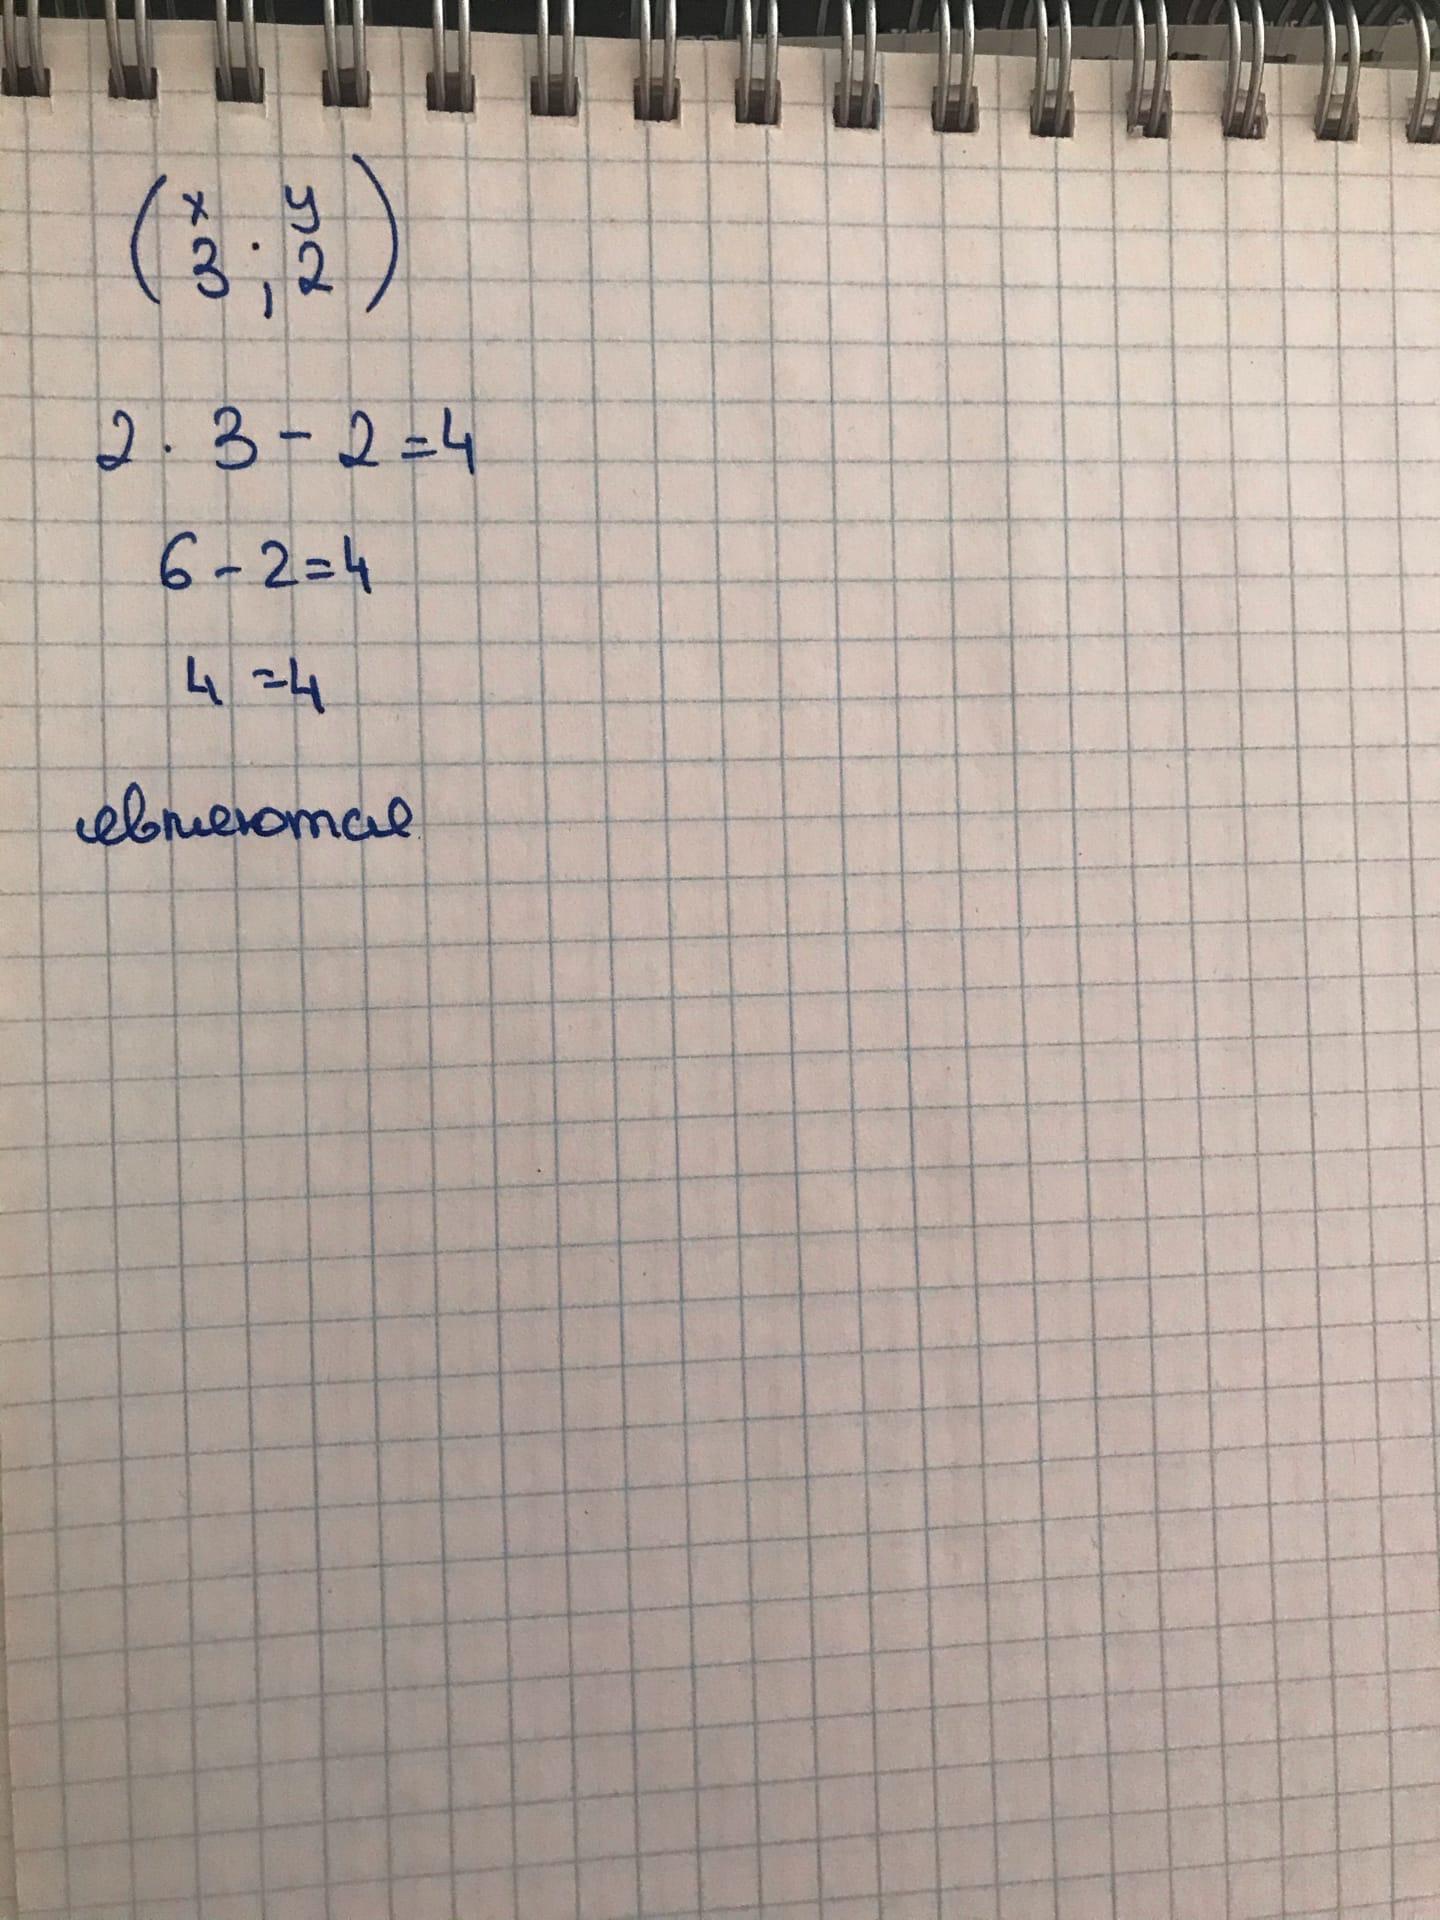 ( x ; y )
3 ; 2
2 · 3 - 2 = 4
6 - 2 = 4
4 = 4
являются